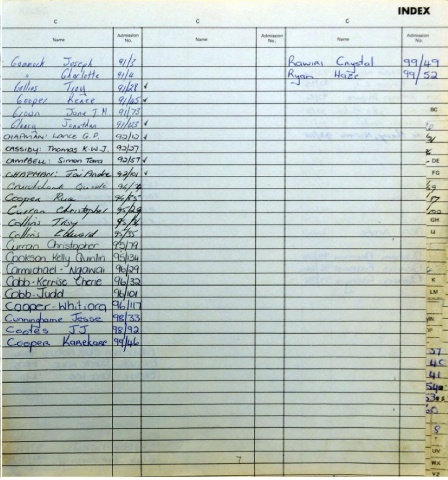 INDEX
C C C
Name Admission No. Name Admission No. Name Admission No.
Cammock Joseph 91/3 Rawiri Crystal 99/49
" Charlotte 91/4 Ryan Haze 99/52
Collins Troy 91/28 ✓
Cooper Renee 91/45 ✓
Crown Jane T.M 91/75
Cleary Jonathan 91/03 ✓
CHAPMAN: Lance G.P. 92/12 ✓
CASSIDY: Thomas K.W.J. 92/27
CAMPBELL: Simon Tara 92/57 ✓
CHAPMAN: Jai Andre 92/101 ✓
Cruickshank
Cooper Rua
Curran Christopher 95/29
Collins Troy
Collins Edward 95/35
Curran Christopher 95/79
Cookson Kelly Quintin 95/134
Carmichael - Ngawai 96/29
Cobb-Kerrise Cherie 96/32
Cobb-Judd 96/101
Cooper-Whitiora 96/117
Cunninghame Jesse 98/33
Cootes JJ 98/92
Cooper Karekare 99/46
BC
DE
FG
GH
IJ
K
LM
UV
WX
YZ
7